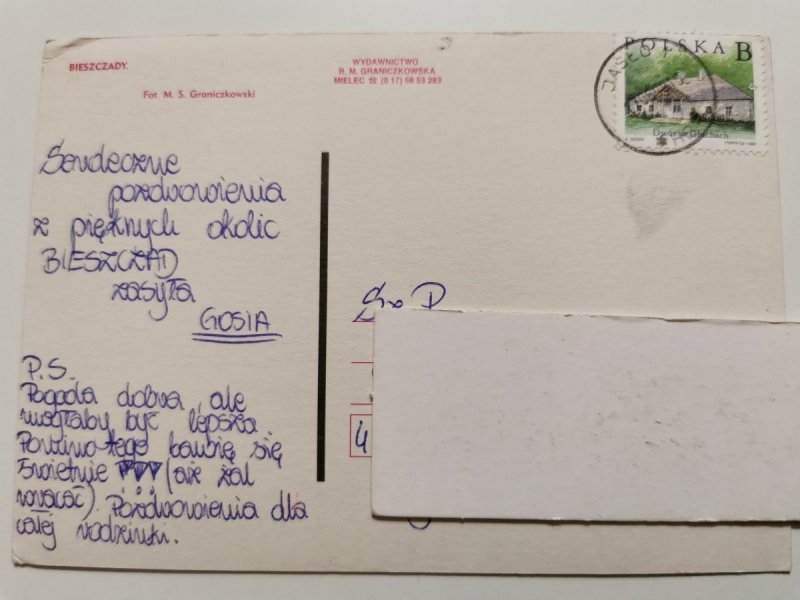 BIESZCZADY.
Fot. M. S. Graniczkowski
WYDAWNICTWO
B. M. GRANICZKOWSKA
MIELEC ☎ (0 17) 58 53 283
POLSKA B
JASŁO
Dwór w Głuchach
Serdeczne
pozdrowienia
z pięknych okolic
BIESZCZAD
zasyła
GOSIA
P.S.
Pogoda dobra, ale
mogłaby być lepsza
Pomimo tego bawię się
świetnie !!! (aż żal
wracać). Pozdrowienia dla
całej rodzinki.
Sz. P.
4